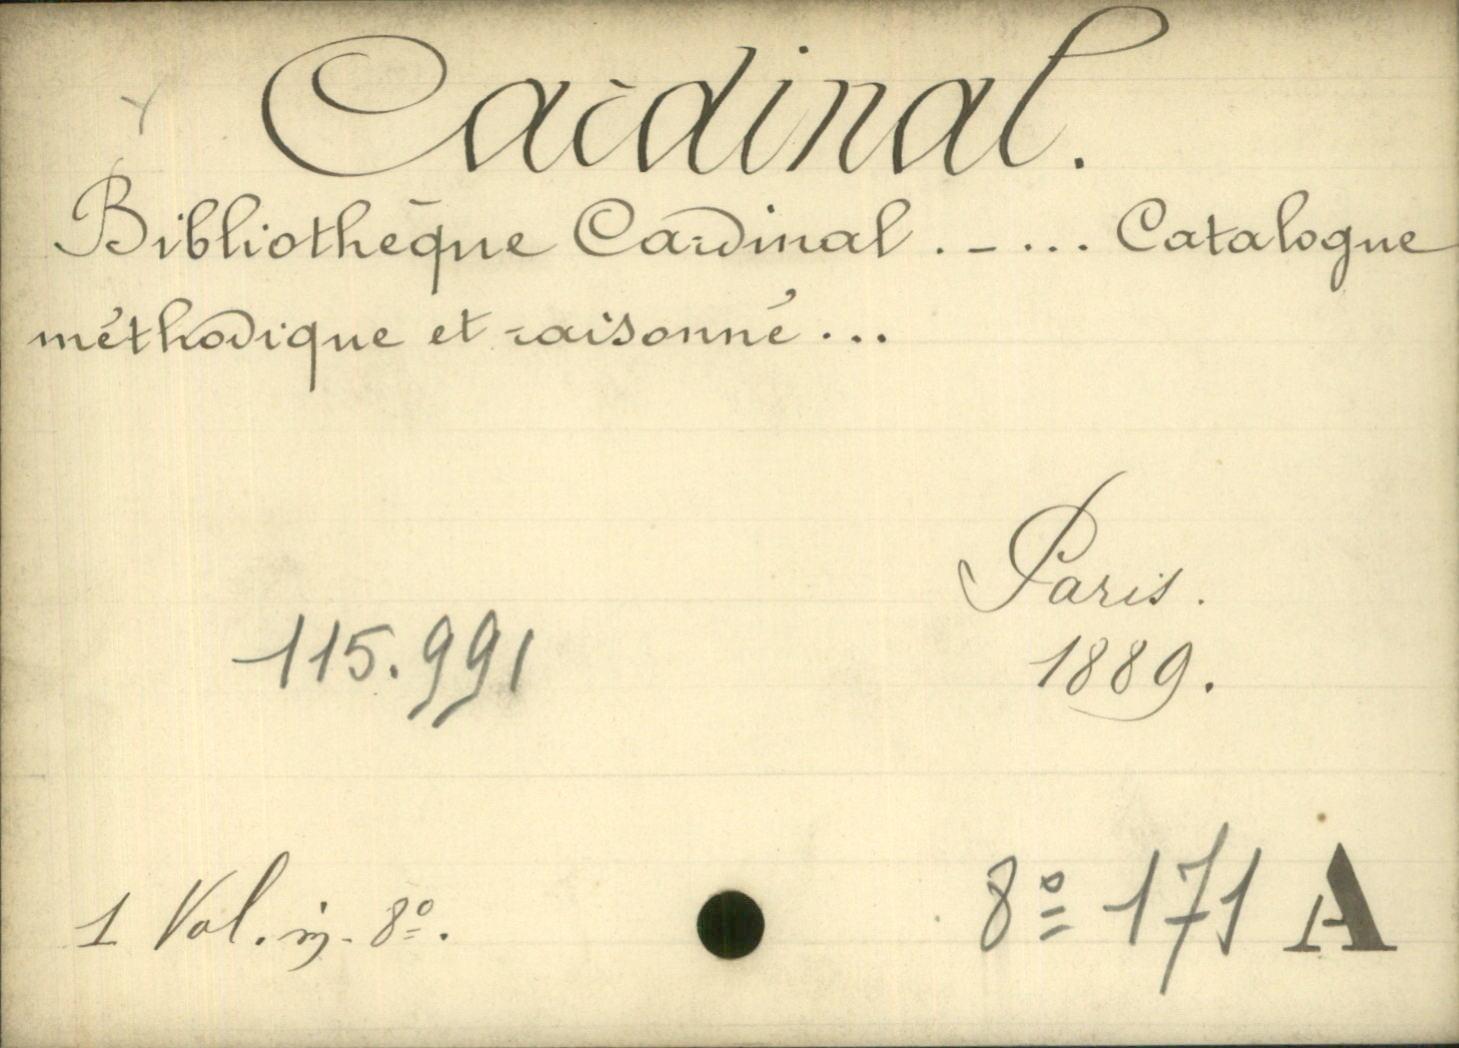 Cardinal.
Bibliothèque Cardinal. - ... Catalogue
méthodique et raisonné...
Paris.
115.991
1889.
1 Vol. in-8º.
8º 171 A